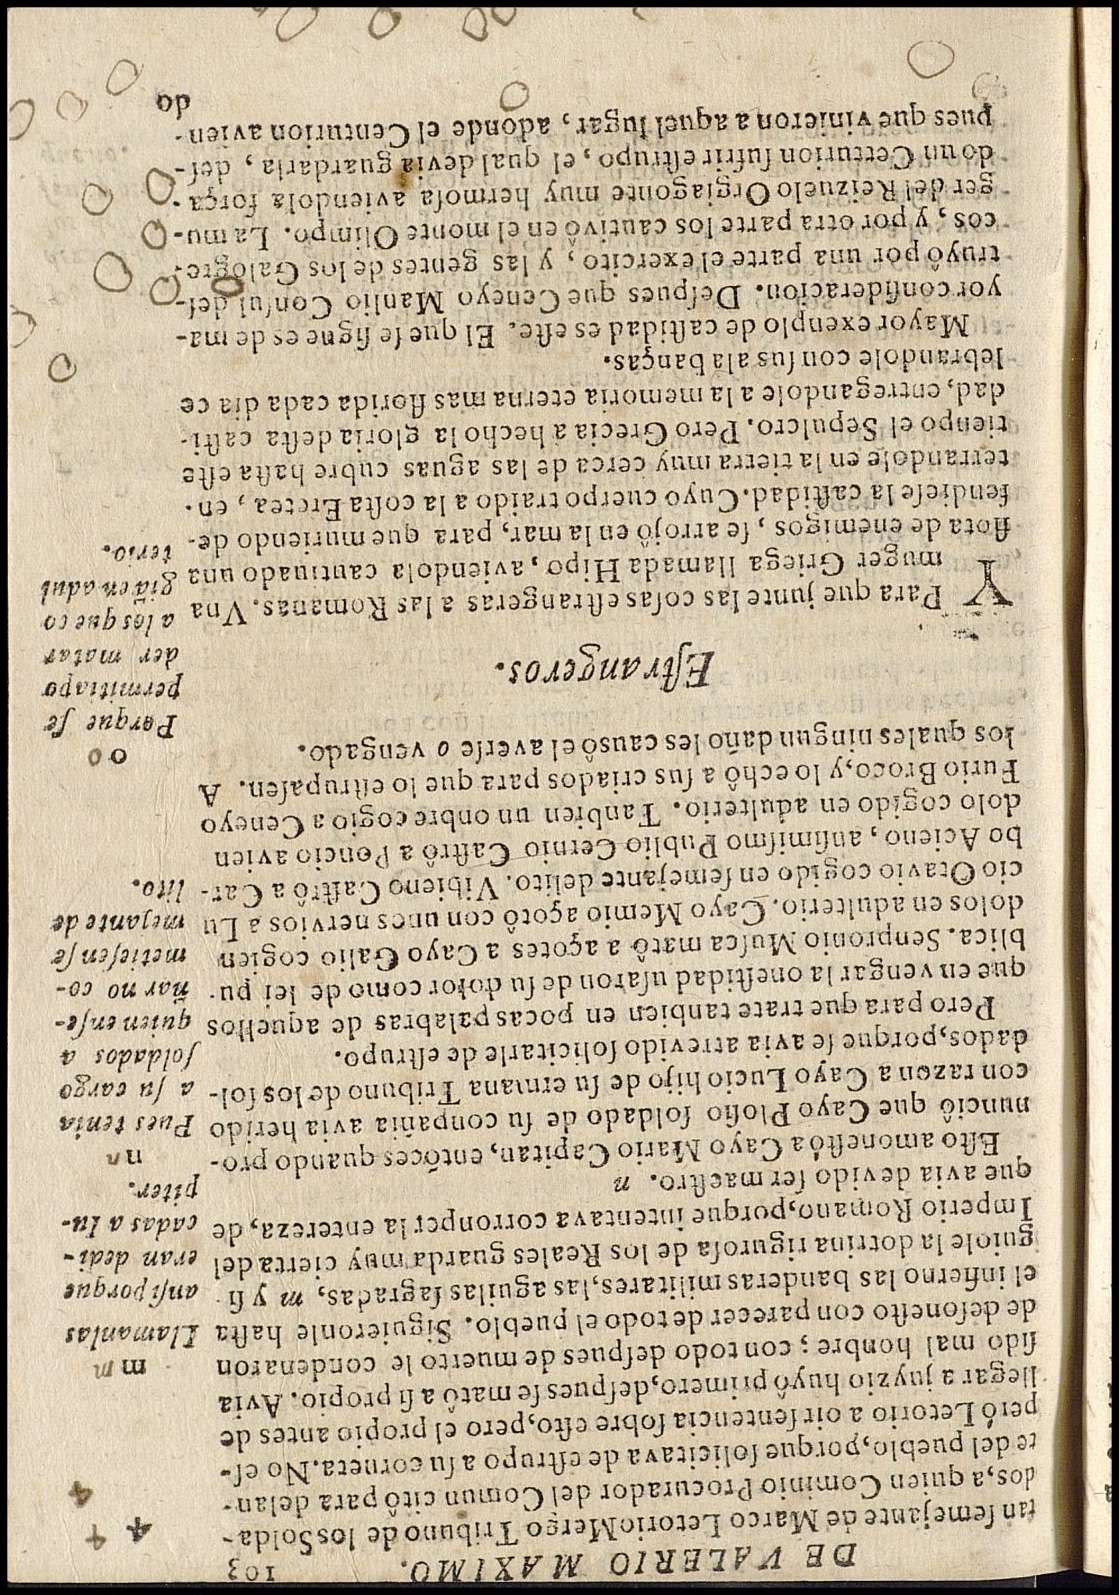 DE VALERIO MAXIMO. 103
tan semejante de Marco Letorio Mergo Tribuno de los Solda-
dos, a quien Cominio Procurador del Comun citô para delan-
te del pueblo, porque solicitava de estrupo a su corneta. No es-
perô Letorio a oir sentencia sobre esto, pero el propio antes de
llegar a juyzio huyô primero, despues se matô a si propio. Avia
sido mal honbre; con todo despues de muerto le condenaron
de desonesto con parecer de todo el pueblo. Siguieronle hasta
el infierno las banderas militares, las aguilas sagradas, m y si-
guiole la dotrina rigurosa de los Reales guarda muy cierta del
Imperio Romano, porque intentava corronper la entereza, de
que avia devido ser maestro. n
Esto amonestô a Cayo Mario Capitan, entôces quando pro-
nunciô que Cayo Plosio soldado de su conpañia avia herido
con razon a Cayo Lucio hijo de su ermana Tribuno de los sol-
dados, porque se avia atrevido solicitarle de estrupo.
Pero para que trate tanbien en pocas palabras de aquellos
que en vengar la onestidad usaron de su dotor como de lei pu-
blica. Senpronio Musca matô a açotes a Cayo Galio cogien
dolos en adulterio. Cayo Memio açotô con unos nervios a Lu
cio Otavio cogido en semejante delito. Vibieno Castrô a Car-
bo Acieno, ansimismo Publio Cernio Castrô a Poncio avien
dolo cogido en adulterio. Tanbien un onbre cogio a Ceneyo
Furio Broco, y lo echô a sus criados para que lo estrupasen. A
los quales ningun daño les causô el averse o vengado.
Estrangeros.
Y Para que junte las cosas estrangeras a las Romanas. Vna
muger Griega llamada Hipo, aviendola cautiuado una
flota de enemigos, se arrojô en la mar, para que muriendo de-
fendiese la castidad. Cuyo cuerpo traido a la costa Erctea, en-
terrandole en la tierra muy cerca de las aguas cubre hasta este
tienpo el Sepulcro. Pero Grecia a hecho la gloria desta casti-
dad, entregandole a la memoria eterna mas florida cada dia ce
lebrandole con sus alabanças.
Mayor exenplo de castidad es este. El que se sigue es de ma-
yor consideracion. Despues que Ceneyo Manlio Consul des-
truyô por una parte el exercito, y las gentes de los Galogre-
cos, y por otra parte los cautivô en el monte Olimpo. La mu-
ger del Reizuelo Orgiagonte muy hermosa aviendola força-
do un Cetturion sufrir estrupo, el qual devia guardarla, des-
pues que vinieron a aquel lugar, adonde el Centurion avien-
do
m m
Llamanlas
ansi porque
eran dedi-
cadas a Iu-
piter.
n n
Pues tenia
a su cargo
soldados a
quien ense-
ñar no co-
metiesen se
mejante de
lito.
o o
Porque se
permitia po
der matar
a los que co
gia en adul
terio.